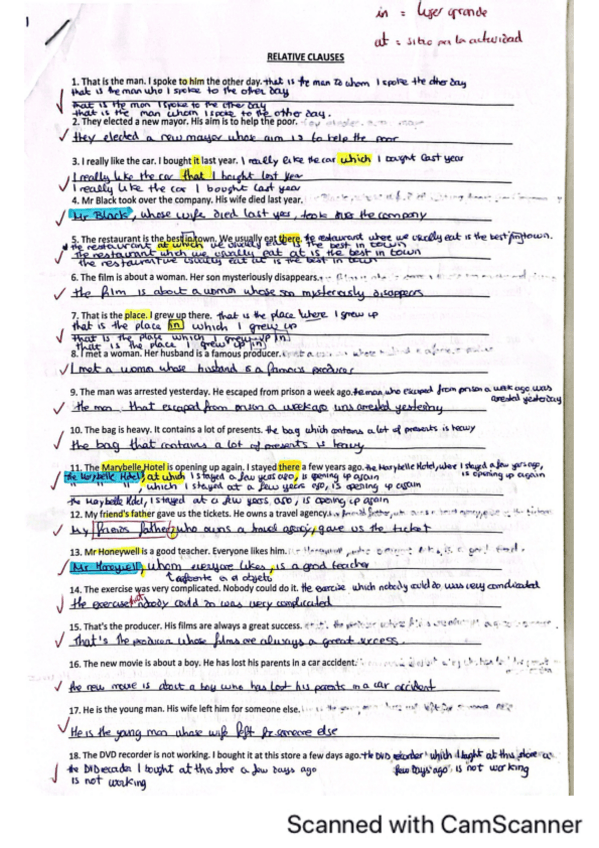 in = lugar grande
at = sitio por la actividad
RELATIVE CLAUSES
1. That is the man. I spoke to him the other day. that is the man to whom I spoke the other day
that is the man who I spoke to the other day
that is the man I spoke to the other day
that is the man whom I spoke to the other day.
2. They elected a new mayor. His aim is to help the poor.
they elected a new mayor whose aim is to help the poor
3. I really like the car. I bought it last year. I really like the car which I bought last year
I really like the car that I bought last year
I really like the car I bought last year
4. Mr Black took over the company. His wife died last year.
Mr Black, whose wife died last year, took over the company
5. The restaurant is the best in town. We usually eat there. the restaurant where we usually eat is the best in town.
the restaurant at which we usually eat is the best in town
the restaurant which we usually eat at is the best in town
the restaurant we usually eat at is the best in town
6. The film is about a woman. Her son mysteriously disappears.
the film is about a woman whose son mysteriously disappears
7. That is the place. I grew up there. that is the place where I grew up
that is the place in which I grew up
that is the place which I grew up in
that is the place I grew up in
8. I met a woman. Her husband is a famous producer.
I met a woman whose husband is a famous producer
9. The man was arrested yesterday. He escaped from prison a week ago. the man who escaped from prison a week ago was
arrested yesterday
the man that escaped from prison a week ago was arrested yesterday
10. The bag is heavy. It contains a lot of presents. the bag which contains a lot of presents is heavy
the bag that contains a lot of presents is heavy
11. The Marybelle Hotel is opening up again. I stayed there a few years ago. the Marybelle Hotel, where I stayed a few years ago,
is opening up again
the Marybelle Hotel, at which I stayed a few years ago, is opening up again
" " " , which I stayed at a few years ago, is opening up again
the Marybelle Hotel, I stayed at a few years ago, is opening up again
12. My friend's father gave us the tickets. He owns a travel agency.
My friends father, who owns a travel agency, gave us the ticket
13. Mr Honeywell is a good teacher. Everyone likes him.
Mr Honeywell, whom everyone likes, is a good teacher
14. The exercise was very complicated. Nobody could do it. the exercise which nobody could do was very complicated
the exercise that nobody could do was very complicated
15. That's the producer. His films are always a great success.
That's the producer whose films are always a great success.
16. The new movie is about a boy. He has lost his parents in a car accident.
the new movie is about a boy who has lost his parents in a car accident
17. He is the young man. His wife left him for someone else.
He is the young man whose wife left for someone else
18. The DVD recorder is not working. I bought it at this store a few days ago. the DVD recorder which I bought at this store a
few days ago is not working
the DVD recorder I bought at this store a few days ago
is not working
Scanned with CamScanner